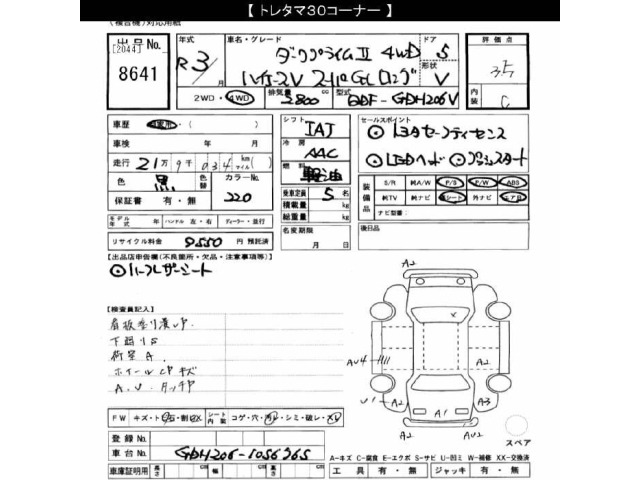 【 トレタマ30コーナー 】
(複合機)対応用紙
出品 No.
[2044]
8641
年式
R 3/ 月
車名・グレード
ダークプライムII 4WD
ハイエースV スーパーGL ロング
ドア 5
形状 V
2WD・4WD
排気量 2800 cc
型式 QDF-GDH206V
評価点
3.5
内装 C
車歴 自家用・( )
車検 年 月
走行 21万9千034 km マイル
色 黒 色替 カラーNo. 220
保証書 有・無
モデル年式 年 ハンドル 左・右 ディーラー・並行
リサイクル料金 9550 円 預託済
シフト IAT
冷房 AAC
燃料 軽油
乗車定員 5 名
積載量 kg
総重量 kg
名変期限
月 日
セールスポイント
◎トヨタセーフティセンス
◎LEDヘッド ◎プッシュスタート
装備品
S/R 純A/W P/S P/W ABS
純TV 純ナビ 革シート 外ナビ エアB
ナビ型番( )
後日品
【出品店申告欄(不良箇所・欠品・注意事項等)】
◎ハーフレザーシート
【検査員記入】
下廻りS
荷室A
ホイールCPキズ
A.U.タッチP
FW キズ・ト石・割・X
シート 内装 コゲ・穴・汚レ・シミ・破レ・スレ
登録 No.
車台 No. GDH206-1056365
車庫証明用 長さ cm 幅 cm 高さ cm
A2
X
AU4
A2
U1
A2
A1
A3
A2
AU2
スペア
A-キズ C-腐食 E-エクボ S-サビ U-凹ミ W-補修 XX-交換済
工具 有・無 ジャッキ 有・無